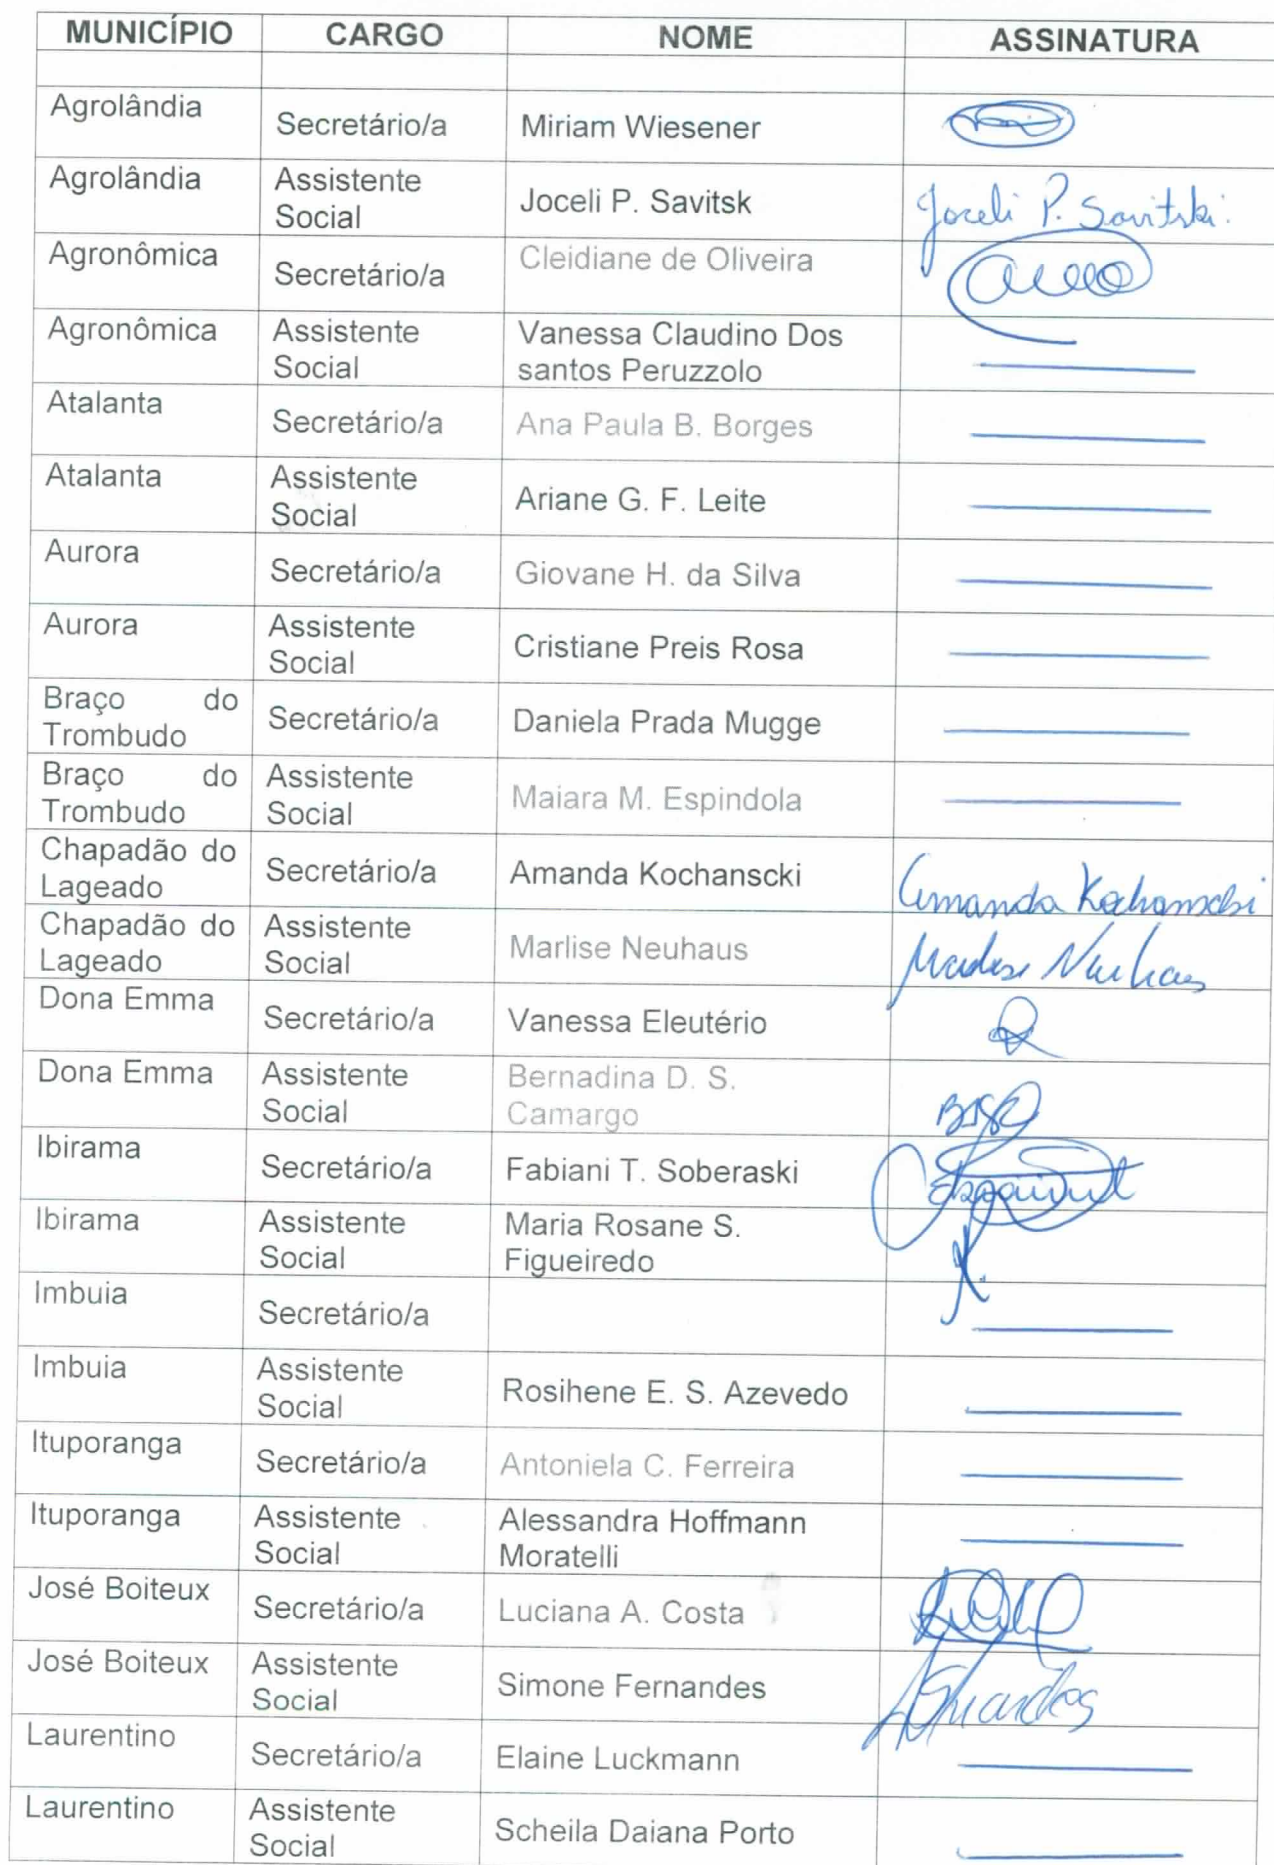 MUNICÍPIO CARGO NOME ASSINATURA
Agrolândia Secretário/a Miriam Wiesener
Agrolândia Assistente Social Joceli P. Savitsk Joceli P. Savitski.
Agronômica Secretário/a Cleidiane de Oliveira
Agronômica Assistente Social Vanessa Claudino Dos santos Peruzzolo
Atalanta Secretário/a Ana Paula B. Borges
Atalanta Assistente Social Ariane G. F. Leite
Aurora Secretário/a Giovane H. da Silva
Aurora Assistente Social Cristiane Preis Rosa
Braço do Trombudo Secretário/a Daniela Prada Mugge
Braço do Trombudo Assistente Social Maiara M. Espindola
Chapadão do Lageado Secretário/a Amanda Kochanscki Amanda Kochanscki
Chapadão do Lageado Assistente Social Marlise Neuhaus Marlise Neuhaus
Dona Emma Secretário/a Vanessa Eleutério
Dona Emma Assistente Social Bernadina D. S. Camargo
Ibirama Secretário/a Fabiani T. Soberaski
Ibirama Assistente Social Maria Rosane S. Figueiredo
Imbuia Secretário/a
Imbuia Assistente Social Rosihene E. S. Azevedo
Ituporanga Secretário/a Antoniela C. Ferreira
Ituporanga Assistente Social Alessandra Hoffmann Moratelli
José Boiteux Secretário/a Luciana A. Costa
José Boiteux Assistente Social Simone Fernandes
Laurentino Secretário/a Elaine Luckmann
Laurentino Assistente Social Scheila Daiana Porto